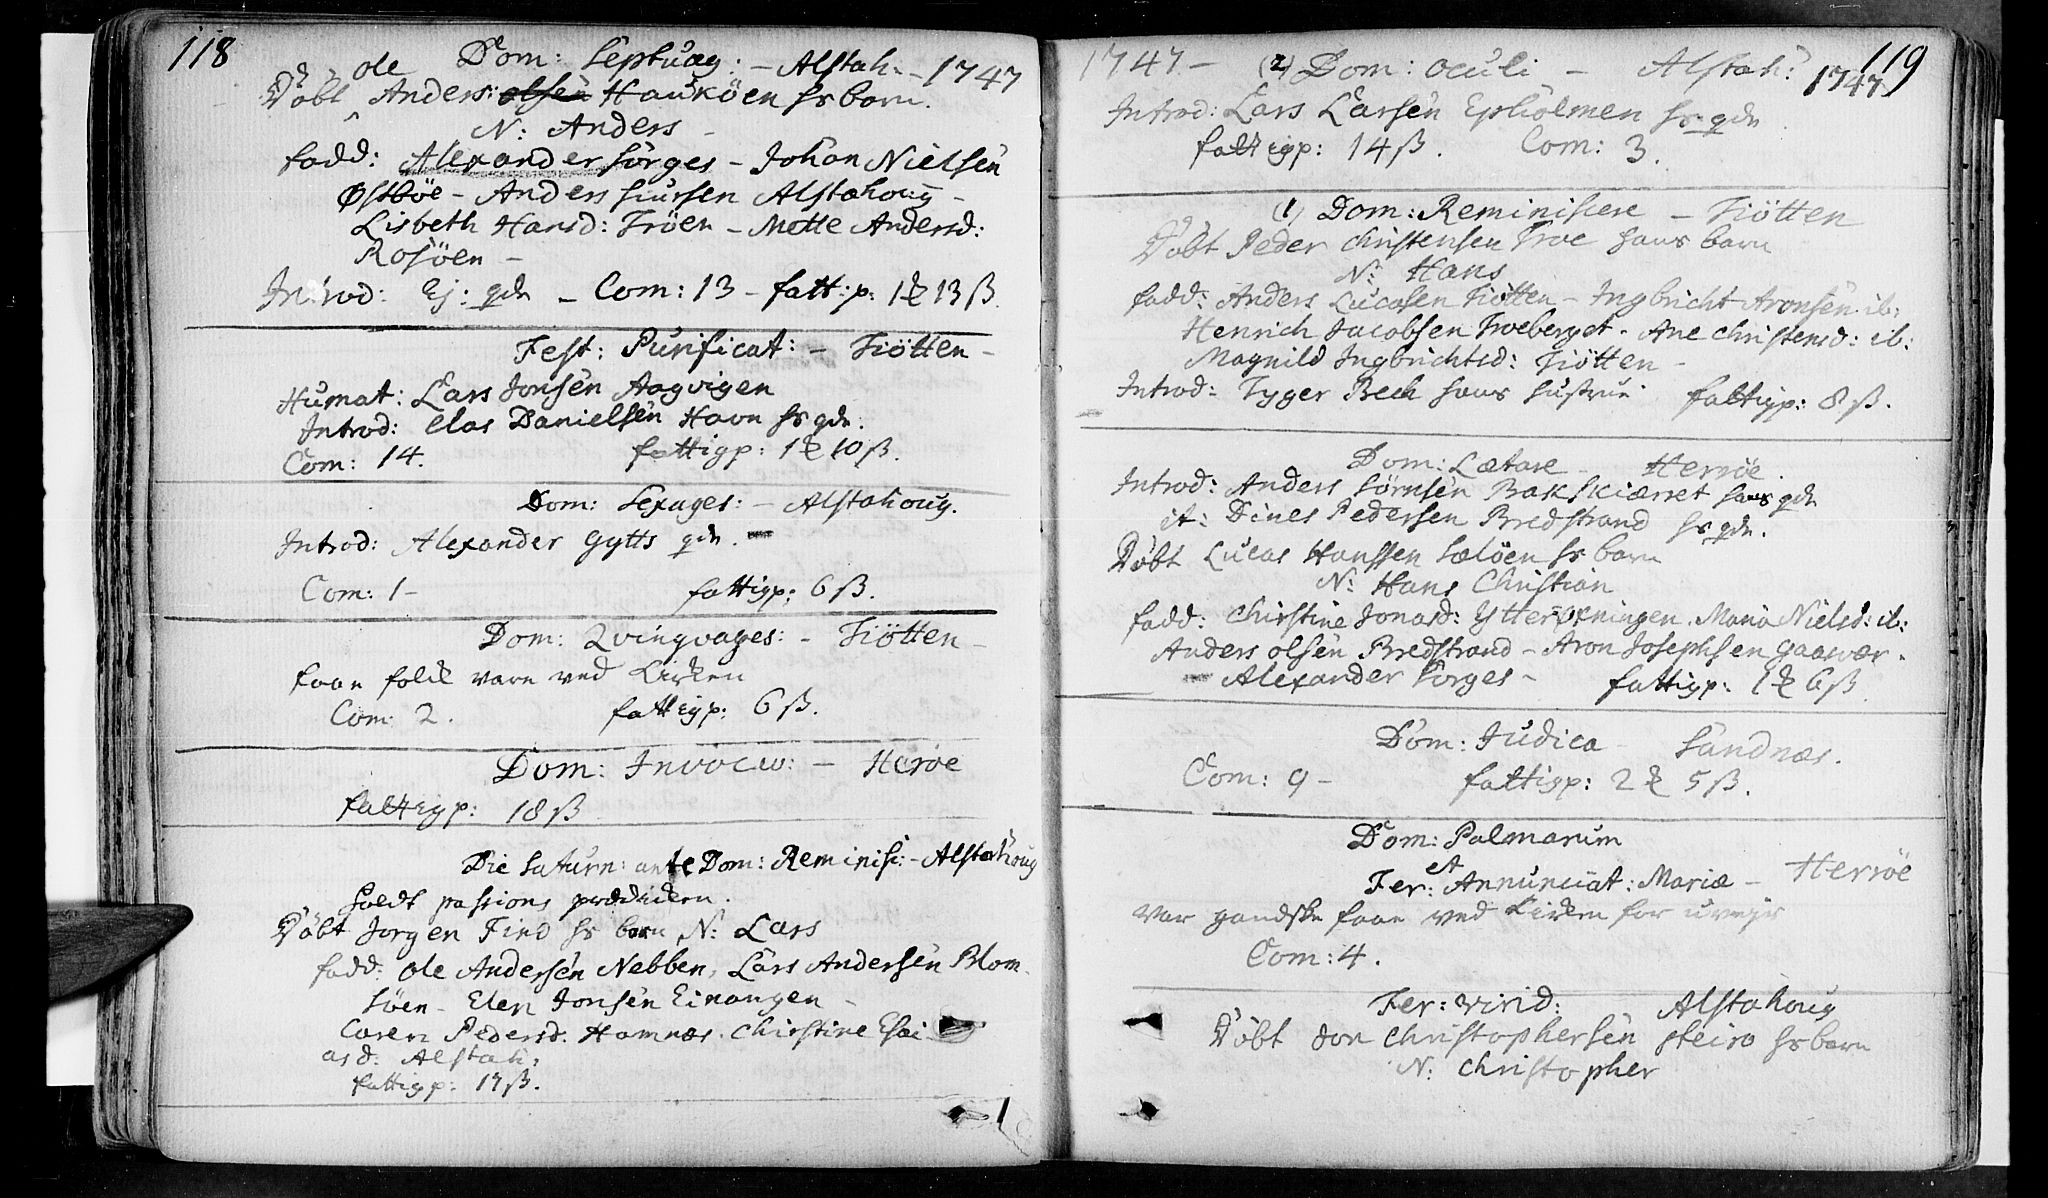 118
Dom: Septuag: - Alstah: - 1747
Döbt Ole Anders: olsen Hauköen hs barn.
N: Anders -
fadd: Alexander Sorges - Johan Nielsen
Østböe - Anders Siursen Alstahoug -
Lisbeth Hansd: Tröen - Mette Andersd:
Rosöen -
Introd: Ej: qde - Com: 13 - fatt: p: 1 13 ß.
Fest: Purificat: - Tiötten -
Humat: Lars Jonsen Aagvigen
Introd: Clas Danielsen Havn hs qde:
Com: 14. fattigp: 1 10 ß.
Dom: Sexages: - Alstahoug.
Introd: Alexander Gytts qde.
Com: 1 - fattigp: 6 ß.
Dom: Qvinqvages: - Tiötten -
faae folck vare ved Kirken
Com: 2. fattigp: 6 ß.
Dom: Invocav: - Heröe
fattigp: 18 ß
Die Saturn: ante Dom: Reminisc: - Alstahoug
holdt passions prædicken.
Döbt Jorgen Find hs barn N: Lars
fadd: Ole Andersen Nebben, Lars Andersen Blom-
söen - Elen Jonsen Einangen -
Caren Pedersd. Hamnæs. Christine Esai
asd: Alstah:
fattigp: 17 ß.
119
1747 - (2) Dom: Oculi - Alstah: 1747
Introd: Lars Larsen Epholmen hs qde
fattigp: 14 ß. Com: 3.
(1) Dom: Reminiscere - Tiötten
Döbt Peder Christensen Troe hans barn
N: Hans
fadd: Anders Lucasen Tiötten - Ingbricht Aronsen ib:
Henrich Jacobsen Troeberget. Ane Christensd: ib:
Magnild Ingbrichtsd: Tiötten -
Introd: Tyger Bech hans hustrue fattigp: 8 ß.
Dom: Lætare - Herröe.
Introd: Anders Sörnsen Bakskiærret hans qde
it: Dines Pedersen Bredstrand hs qde.
Döbt Lucas Hanssen Salöen hs barn
N: Hans Christian
fadd: Christine Jonasd: Ytterøxningen. Maria Nielsd: ib:
Anders Olsen Bredstrand - Aron Josephsen Gaasvær.
- Alexander Sorges - fattigp: 1 6 ß.
Dom: Judica - Sandnæs.
Com: 9 - fattigp: 2 5 ß.
Dom: Palmarum
et
Fer: Annunciat: Mariæ - Herröe
var gandske faae ved Kirken for uvejr
Com: 4.
Fer: Virid: Alstahoug
Döbt Jon Christophersen Steiro hs barn
N: Christopher